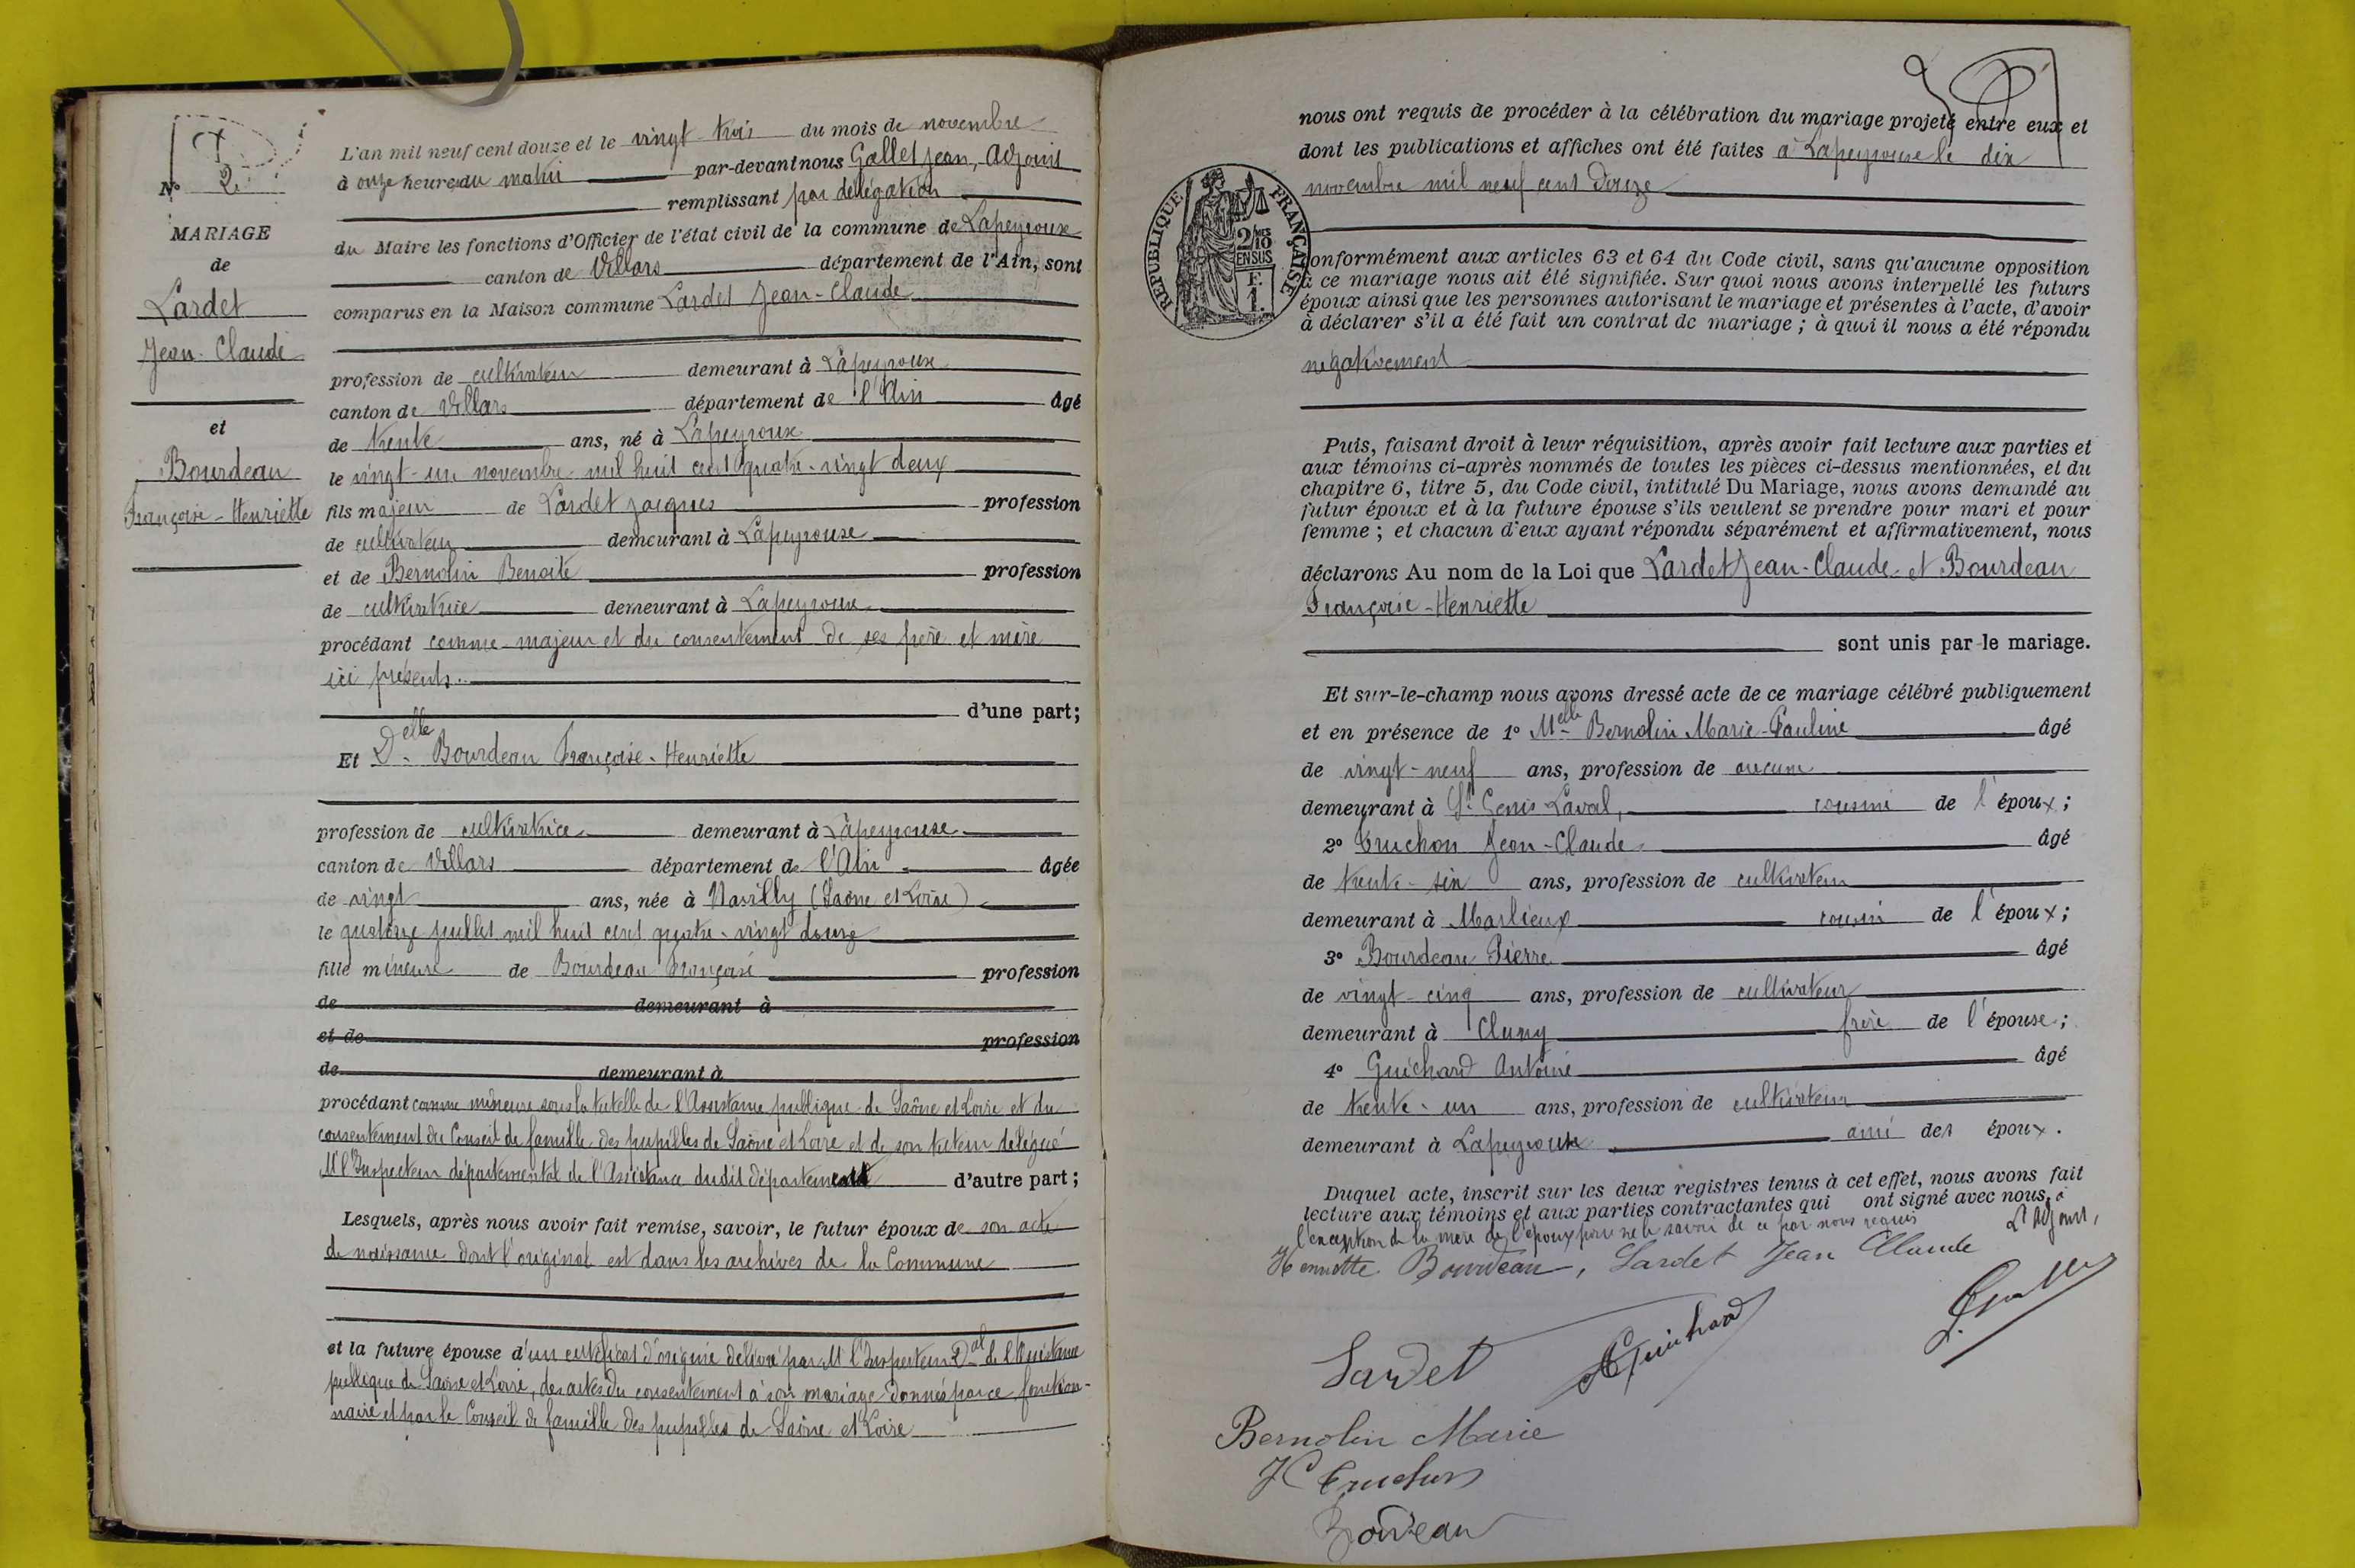 N° 2
MARIAGE
de
Lardet
Jean-Claude
et
Bourdeau
Françoise-Henriette
L'an mil neuf cent douze et le vingt trois du mois de novembre
à onze heures du matin par-devant nous Gallet Jean, Adjoint
remplissant par délégation
du Maire les fonctions d'Officier de l'état civil de la commune de Lapeyrouse
canton de Villars département de l'Ain, sont
comparus en la Maison commune Lardet Jean-Claude
profession de cultivateur demeurant à Lapeyrouse
canton de Villars département de l'Ain âgé
de trente ans, né à Lapeyrouse
le vingt-un novembre mil huit cent quatre-vingt deux
fils majeur de Lardet Jacques profession
de cultivateur demeurant à Lapeyrouse
et de Bernolin Benoite profession
de cultivatrice demeurant à Lapeyrouse
procédant comme majeur et du consentement de ses père et mère
ici présents.
d'une part;
Et Delle Bourdeau Françoise-Henriette
profession de cultivatrice demeurant à Lapeyrouse
canton de Villars département de l'Ain âgée
de vingt ans, née à Navilly (Saône et Loire)
le quatorze juillet mil huit cent quatre-vingt douze
fille mineure de Bourdeau Françoise profession
de demeurant à
et de profession
de demeurant à
procédant comme mineure sous la tutelle de l'Assistance publique de Saône et Loire et du
consentement du Conseil de famille des pupilles de Saône et Loire et de son tuteur délégué
Mr l'Inspecteur départemental de l'Assistance dudit département d'autre part;
Lesquels, après nous avoir fait remise, savoir, le futur époux de son acte
de naissance dont l'original est dans les archives de la Commune
et la future épouse d'un certificat d'origine délivré par M l'Inspecteur Dal de l'Assistance
publique de Saône et Loire, des actes du consentement à son mariage donnés par ce fonction-
naire et par le Conseil de famille des pupilles de Saône et Loire
nous ont requis de procéder à la célébration du mariage projeté entre eux et
dont les publications et affiches ont été faites à Lapeyrouse le dix
novembre mil neuf cent douze
RÉPUBLIQUE FRANÇAISE
2/10 EN SUS
1 F.
conformément aux articles 63 et 64 du Code civil, sans qu'aucune opposition
à ce mariage nous ait été signifiée. Sur quoi nous avons interpellé les futurs
époux ainsi que les personnes autorisant le mariage et présentes à l'acte, d'avoir
à déclarer s'il a été fait un contrat de mariage; à quoi il nous a été répondu
négativement
Puis, faisant droit à leur réquisition, après avoir fait lecture aux parties et
aux témoins ci-après nommés de toutes les pièces ci-dessus mentionnées, et du
chapitre 6, titre 5, du Code civil, intitulé Du Mariage, nous avons demandé au
futur époux et à la future épouse s'ils veulent se prendre pour mari et pour
femme; et chacun d'eux ayant répondu séparément et affirmativement, nous
déclarons Au nom de la Loi que Lardet Jean-Claude et Bourdeau
Françoise-Henriette
sont unis par le mariage.
Et sur-le-champ nous avons dressé acte de ce mariage célébré publiquement
et en présence de 1° Melle Bernolin Marie-Pauline âgé
de vingt-neuf ans, profession de aucune
demeurant à St Genis-Laval, cousine de l'époux;
2° Truchon Jean-Claude âgé
de trente-six ans, profession de cultivateur
demeurant à Marlieux cousin de l'époux;
3° Bourdeau Pierre âgé
de vingt-cinq ans, profession de cultivateur
demeurant à Cluny frère de l'épouse;
4° Guichard Antoine âgé
de trente-un ans, profession de cultivateur
demeurant à Lapeyrouse ami des époux.
Duquel acte, inscrit sur les deux registres tenus à cet effet, nous avons fait
lecture aux témoins et aux parties contractantes qui ont signé avec nous, à
l'exception de la mère de l'époux pour ne le savoir de ce par nous requis
L'Adjoint,
Henriette Bourdeau, Lardet Jean Claude
Lardet Guichard J. Gallet
Bernolin Marie
JC Truchon
Bourdeau